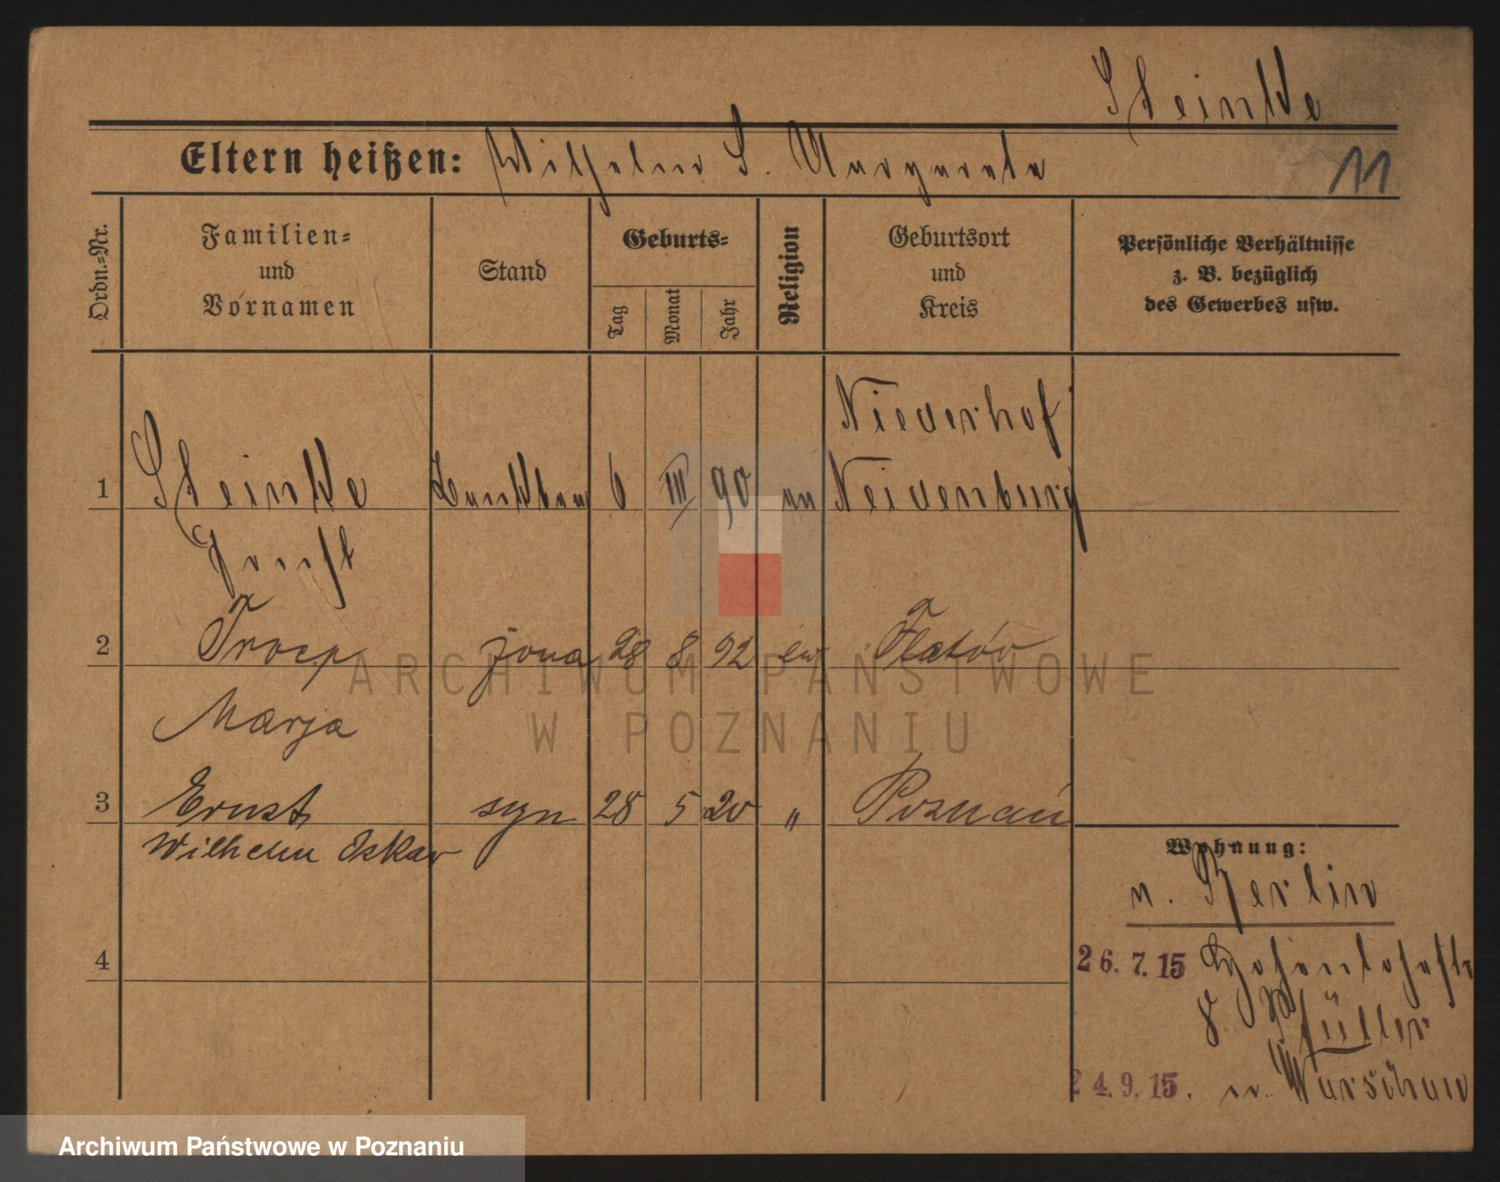 Steinke
Eltern heißen: Wilhelm S. Margarete
11
Ordn.=Nr.
Familien=
und
Vornamen
Stand
Geburts=
Tag
Monat
Jahr
Religion
Geburtsort
und
Kreis
Persönliche Verhältnisse
z. B. bezüglich
des Gewerbes usw.
Niederhof
1 Steinke 6 III 90 Neidenburg
Ernst
2 Troep żona 28 8 92 ew Flatów
Marja
3 Ernst syn 28 5 20 " Poznań
Wilhelm Oskar
Wohnung:
n. Berlin
4
26. 7. 15
8. Müller
24. 9. 15. n. Warschau
ARCHIWUM PAŃSTWOWE
W POZNANIU
Archiwum Państwowe w Poznaniu